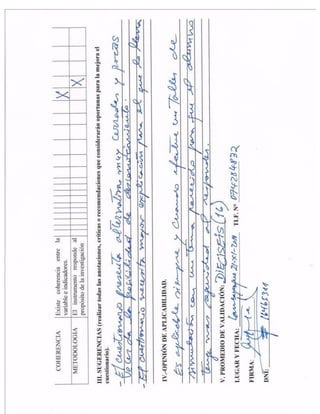 COHERENCIA
Existe coherencia entre la
variable e indicadores.
X
METODOLOGÍA
El instrumento responde al
propósito de la investigación
X
III. SUGERENCIAS (realizar todas las anotaciones, críticas o recomendaciones que considerarán oportunas para la mejora el
cuestionario).
- El cuestionario presenta alternativas muy cerradas y pocas
la posibilidad de
- El cuestionario necesita mayor explicación para el que lo llena
IV.-OPINIÓN DE APLICABILIDAD.
Es aplicable siempre y cuando efectue un Taller de
simulación con un tema parecido para que el alumno
tenga mas capacidad al responder.
V. PROMEDIO DE VALIDACIÓN: DIECISEIS (16)
LUGAR Y FECHA: TLF. Nº
FIRMA:
DNI: